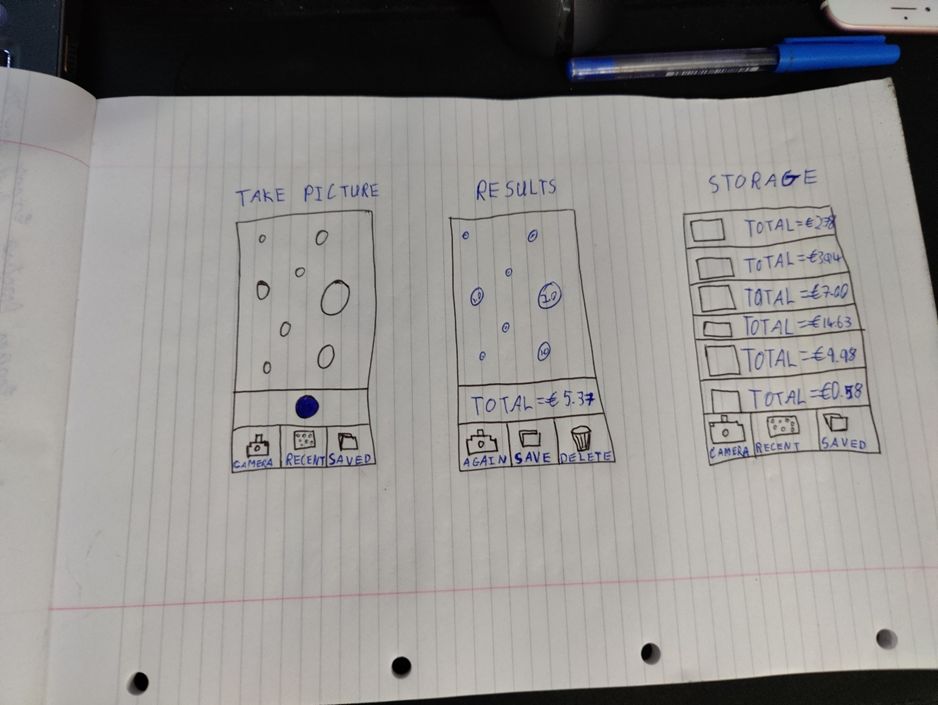 TAKE PICTURE
CAMERA RECENT SAVED
RESULTS
20
10
TOTAL=€5.37
AGAIN SAVE DELETE
STORAGE
TOTAL=€2.78
TOTAL=€3.94
TOTAL=€7.00
TOTAL=€14.63
TOTAL=€9.98
TOTAL=€0.58
CAMERA RECENT SAVED